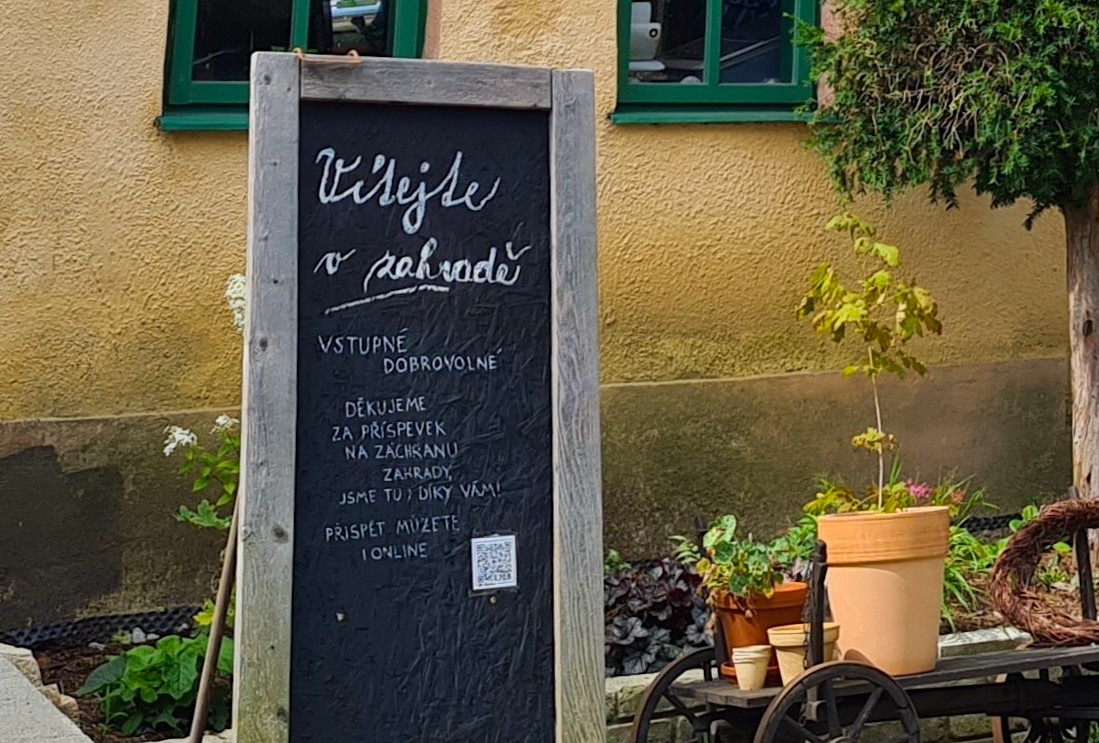 Vítejte
v zahradě
VSTUPNÉ
DOBROVOLNÉ
DĚKUJEME
ZA PŘÍSPEVEK
NA ZÁCHRANU
ZAHRADY,
JSME TU I DÍKY VÁM!
PŘISPĚT MŮŽETE
I ONLINE